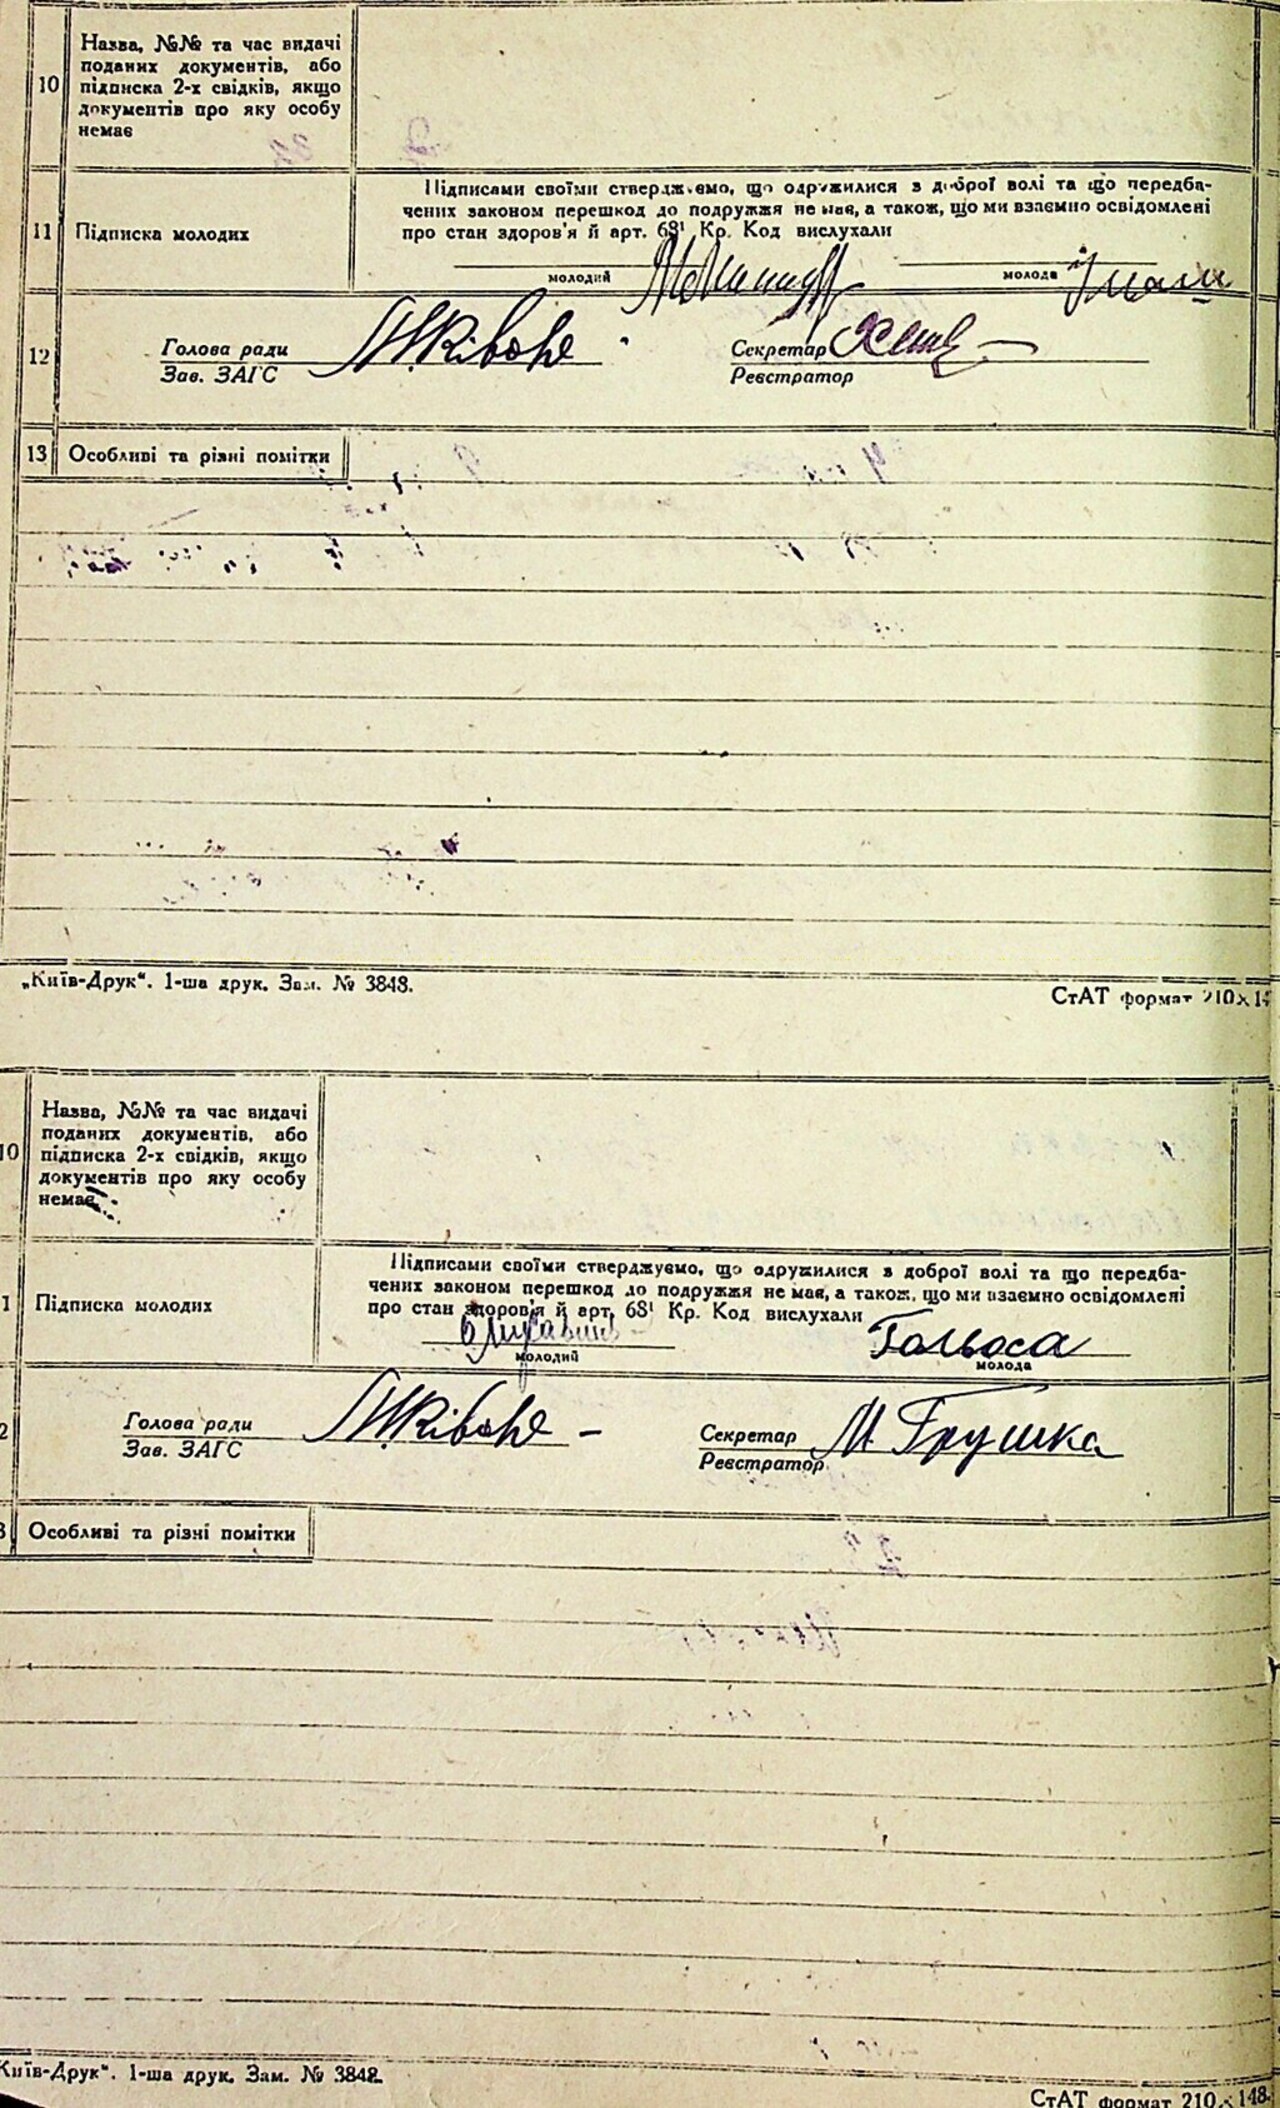 10
Назва, №№ та час видачі
поданих документів, або
підписка 2-х свідків, якщо
документів про яку особу
немає
11
Підписка молодих
Підписами своїми стверджуємо, що одружилися з доброї волі та що передба-
чених законом перешкод до подружжя не має, а також, що ми взаємно освідомлені
про стан здоров'я й арт. 68¹ Кр. Код вислухали
молодий
молода
12
Голова ради
Зав. ЗАГС
Секретар
Реєстратор
13
Особливі та різні помітки
„Київ-Друк“. 1-ша друк. Зам. № 3848.
СтАТ формат 210×14
10
Назва, №№ та час видачі
поданих документів, або
підписка 2-х свідків, якщо
документів про яку особу
немає
1
Підписка молодих
Підписами своїми стверджуємо, що одружилися з доброї волі та що передба-
чених законом перешкод до подружжя не має, а також, що ми взаємно освідомлені
про стан здоров'я й арт. 68¹ Кр. Код вислухали
Гольоса
молодий
молода
2
Голова ради
Зав. ЗАГС
Секретар М Грушка
Реєстратор
3
Особливі та різні помітки
Київ-Друк“. 1-ша друк. Зам. № 3842.
СтАТ формат 210×148.